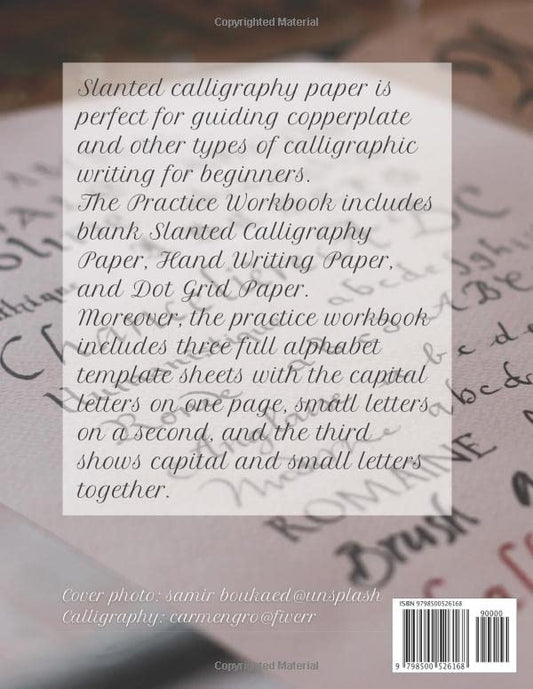 Copyrighted Material
Slanted calligraphy paper is
perfect for guiding copperplate
and other types of calligraphic
writing for beginners.
The Practice Workbook includes
blank Slanted Calligraphy
Paper, Hand Writing Paper,
and Dot Grid Paper.
Moreover, the practice workbook
includes three full alphabet
template sheets with the capital
letters on one page, small letters
on a second, and the third
shows capital and small letters
together.
ROMAINE
Brush
Cover photo: samir boukaed@unsplash
Calligraphy: carmengro@fiverr
ISBN 9798500526168
90000
9 798500 526168
Copyrighted Material